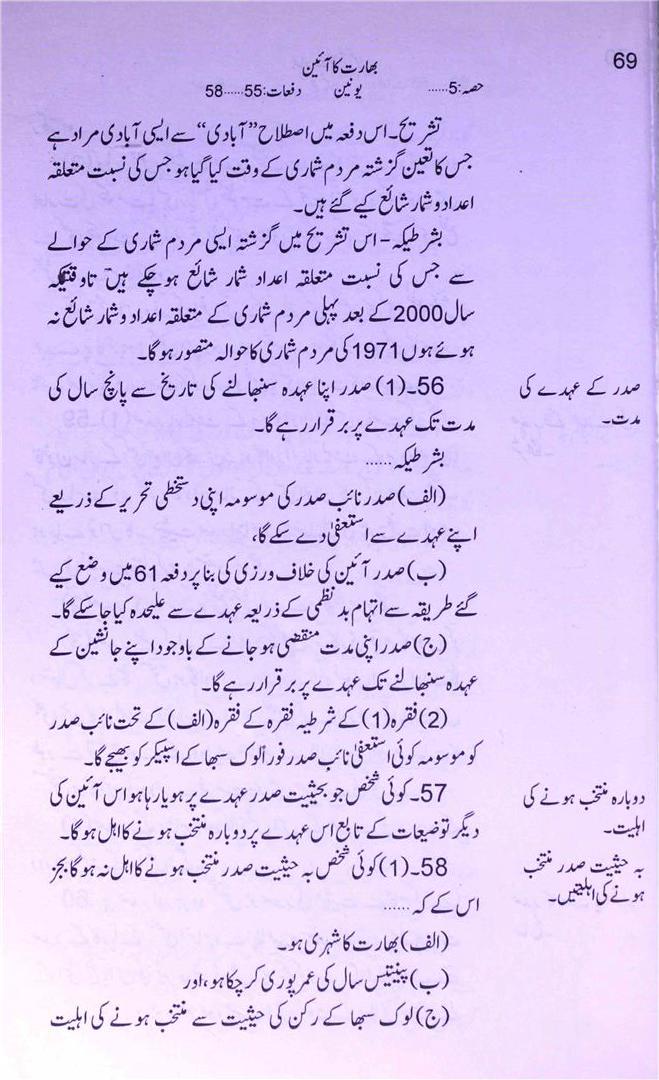 69
بھارت کا آئین
حصہ:5...... یونین دفعات:55......58
تشریح۔اس دفعہ میں اصطلاح ”آبادی“ سے ایسی آبادی مراد ہے
جس کا تعین گزشتہ مردم شماری کے وقت کیا گیا ہو جس کی نسبت متعلقہ
اعداد و شمار شائع کیے گئے ہیں۔
بشرطیکہ - اس تشریح میں گزشتہ ایسی مردم شماری کے حوالے
سے جس کی نسبت متعلقہ اعداد شمار شائع ہو چکے ہیں تاوقتیکہ
سال 2000 کے بعد پہلی مردم شماری کے متعلقہ اعداد و شمار شائع نہ
ہوئے ہوں 1971 کی مردم شماری کا حوالہ متصور ہوگا۔
صدر کے عہدے کی
مدت۔
56۔(1) صدر اپنا عہدہ سنبھالنے کی تاریخ سے پانچ سال کی
مدت تک عہدے پر برقرار رہے گا۔
بشرطیکہ ......
(الف) صدر نائب صدر کی موسومہ اپنی دستخطی تحریر کے ذریعے
اپنے عہدے سے استعفیٰ دے سکے گا،
(ب) صدر آئین کی خلاف ورزی کی بنا پر دفعہ 61 میں وضع کیے
گئے طریقہ سے اتہام بدنظمی کے ذریعہ عہدے سے علیحدہ کیا جا سکے گا۔
(ج) صدر اپنی مدت منقضی ہو جانے کے باوجود اپنے جانشین کے
عہدہ سنبھالنے تک عہدے پر برقرار رہے گا۔
(2) فقرہ (1) کے شرطیہ فقرہ کے فقرہ (الف) کے تحت نائب صدر
کو موسومہ کوئی استعفیٰ نائب صدر فوراً لوک سبھا کے اسپیکر کو بھیجے گا۔
دوبارہ منتخب ہونے کی
اہلیت۔
57۔ کوئی شخص جو بحیثیت صدر عہدے پر ہو یا رہا ہو اس آئین کی
دیگر توضیعات کے تابع اس عہدے پر دوبارہ منتخب ہونے کا اہل ہوگا۔
بہ حیثیت صدر منتخب
ہونے کی اہلیتیں۔
58۔(1) کوئی شخص بہ حیثیت صدر منتخب ہونے کا اہل نہ ہوگا بجز
اس کے کہ ......
(الف) بھارت کا شہری ہو۔
(ب) پینتیس سال کی عمر پوری کر چکا ہو، اور
(ج) لوک سبھا کے رکن کی حیثیت سے منتخب ہونے کی اہلیت